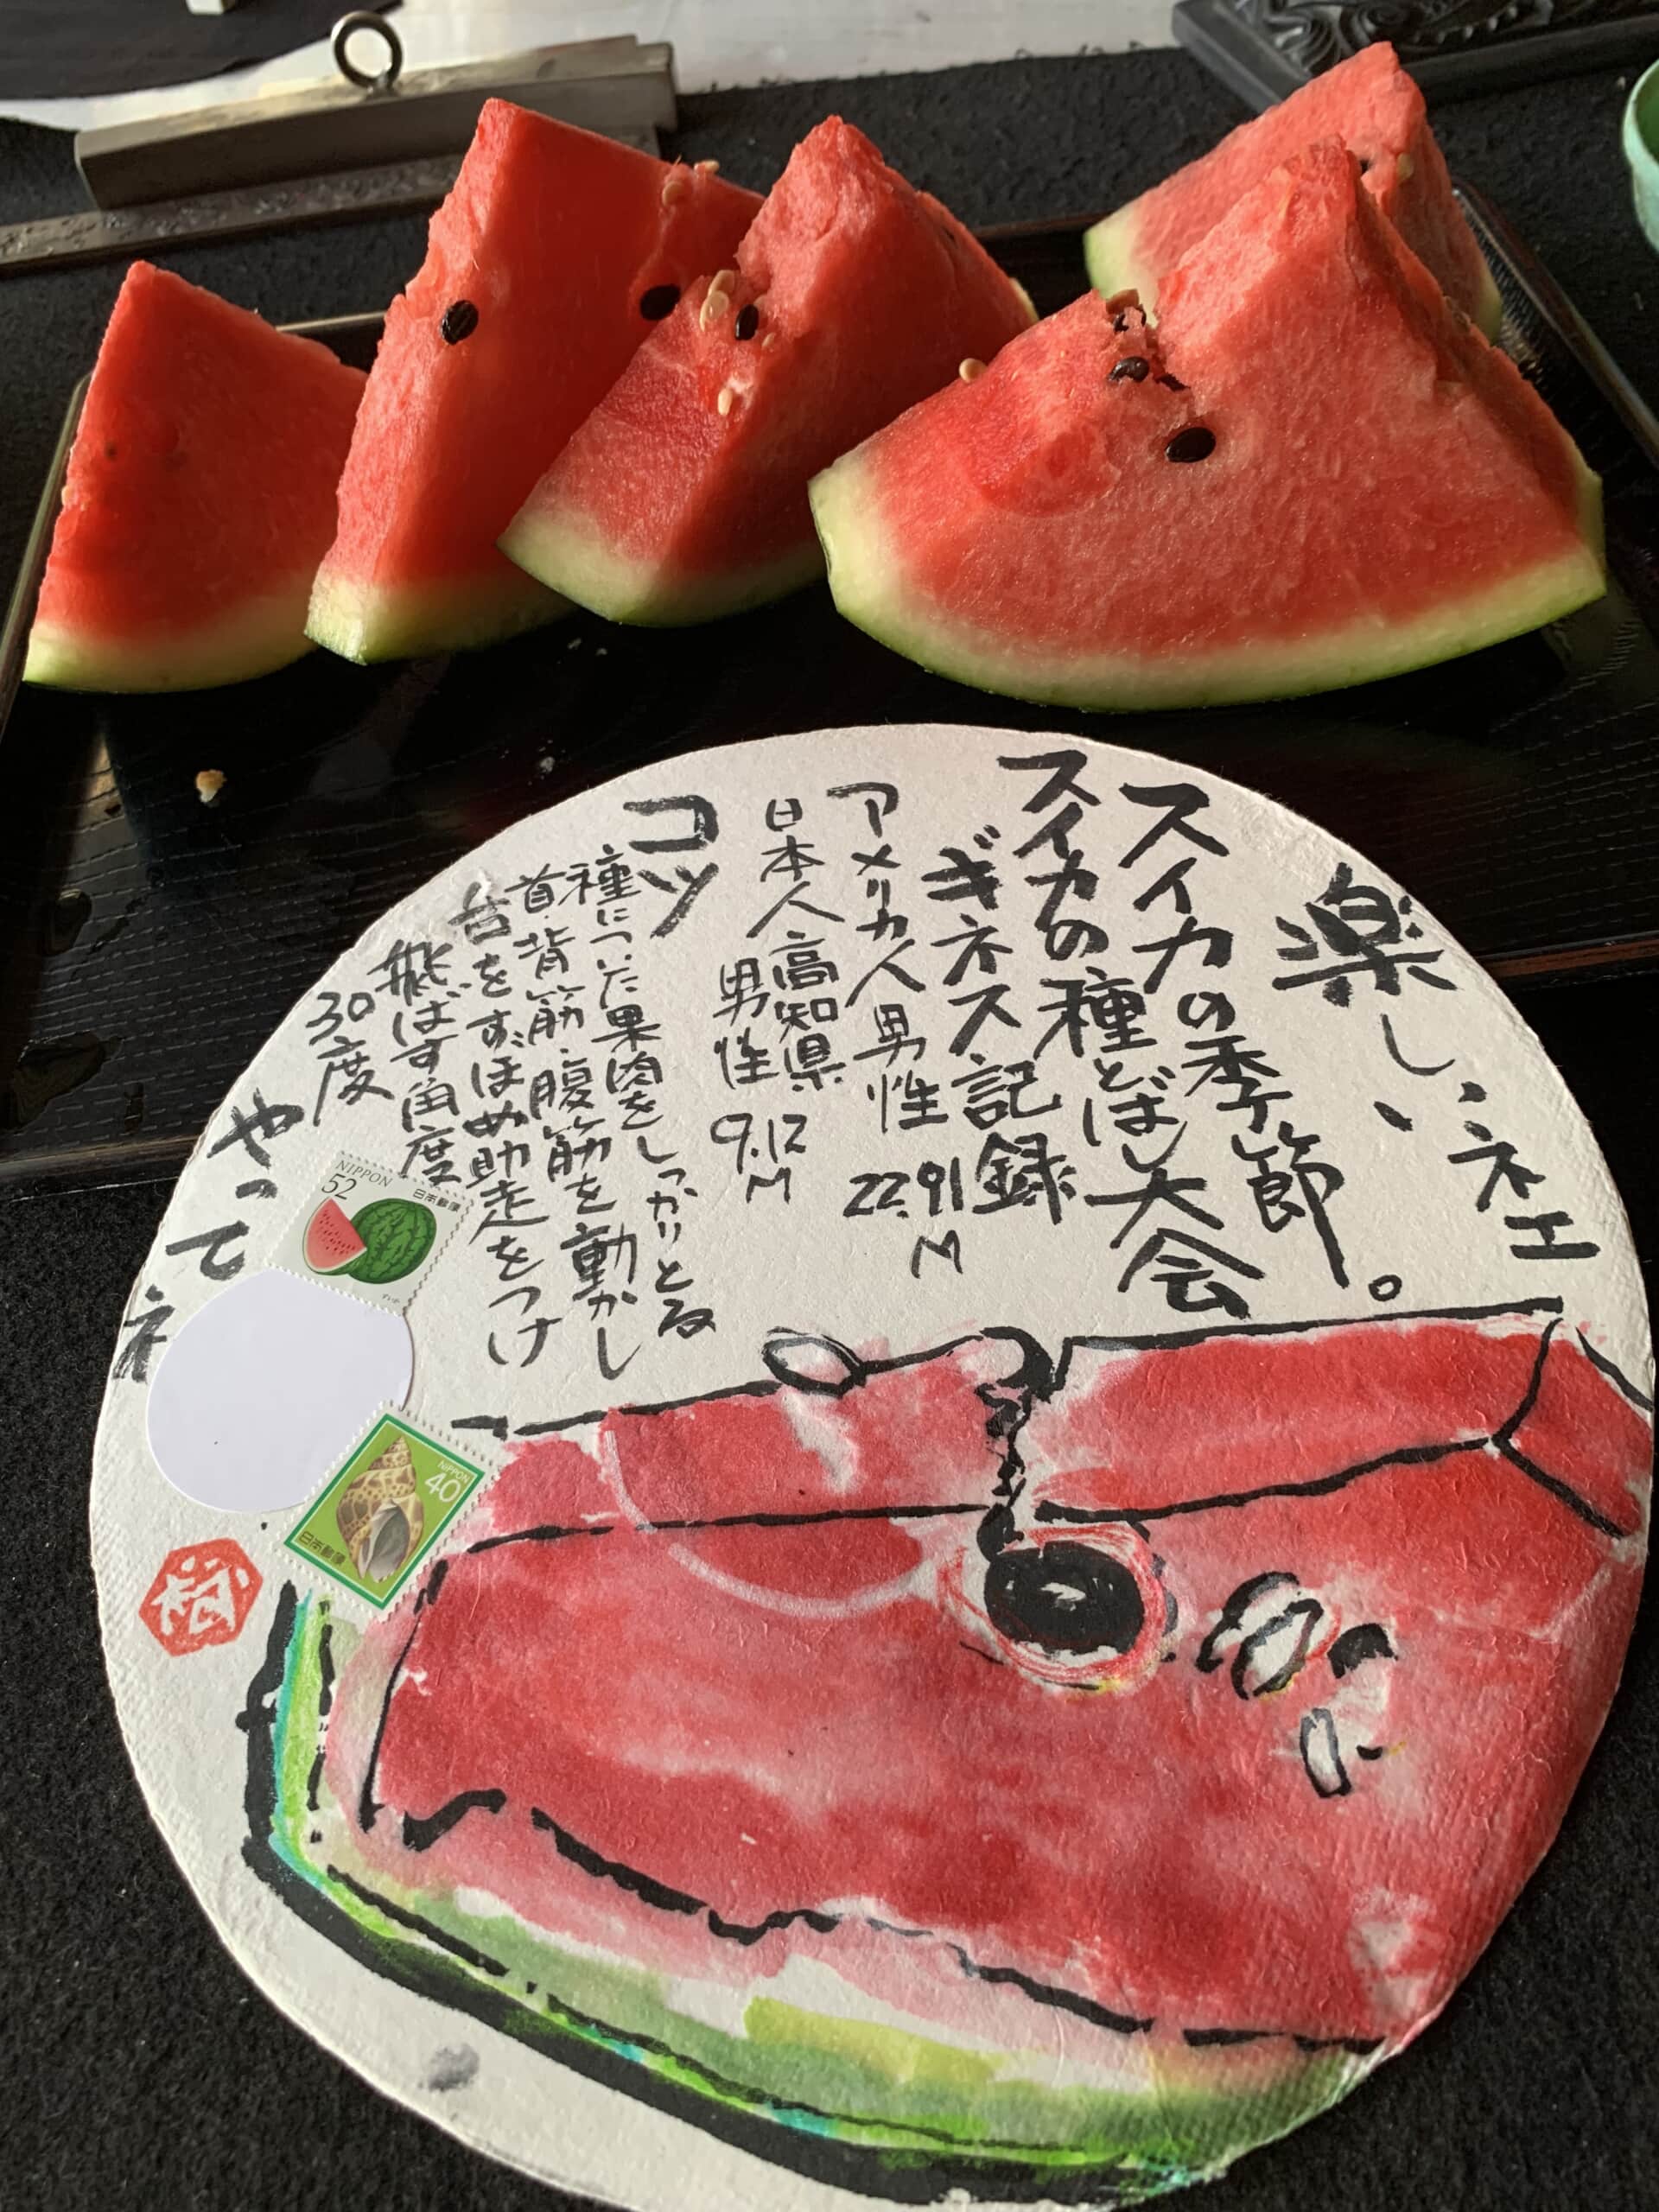 楽しいネエ
スイカの季節。
スイカの種とばし大会
ギネス記録
アメリカ人男性 22.91M
日本人高知県
男性 9.12M
コツ
種についた果肉をしっかりとる
首・背筋・腹筋を動かし
舌をすぼめ助走をつけ
飛ばす角度
30度
やってネ
NIPPON
52
日本郵便
すいか
NIPPON
40
日本郵便